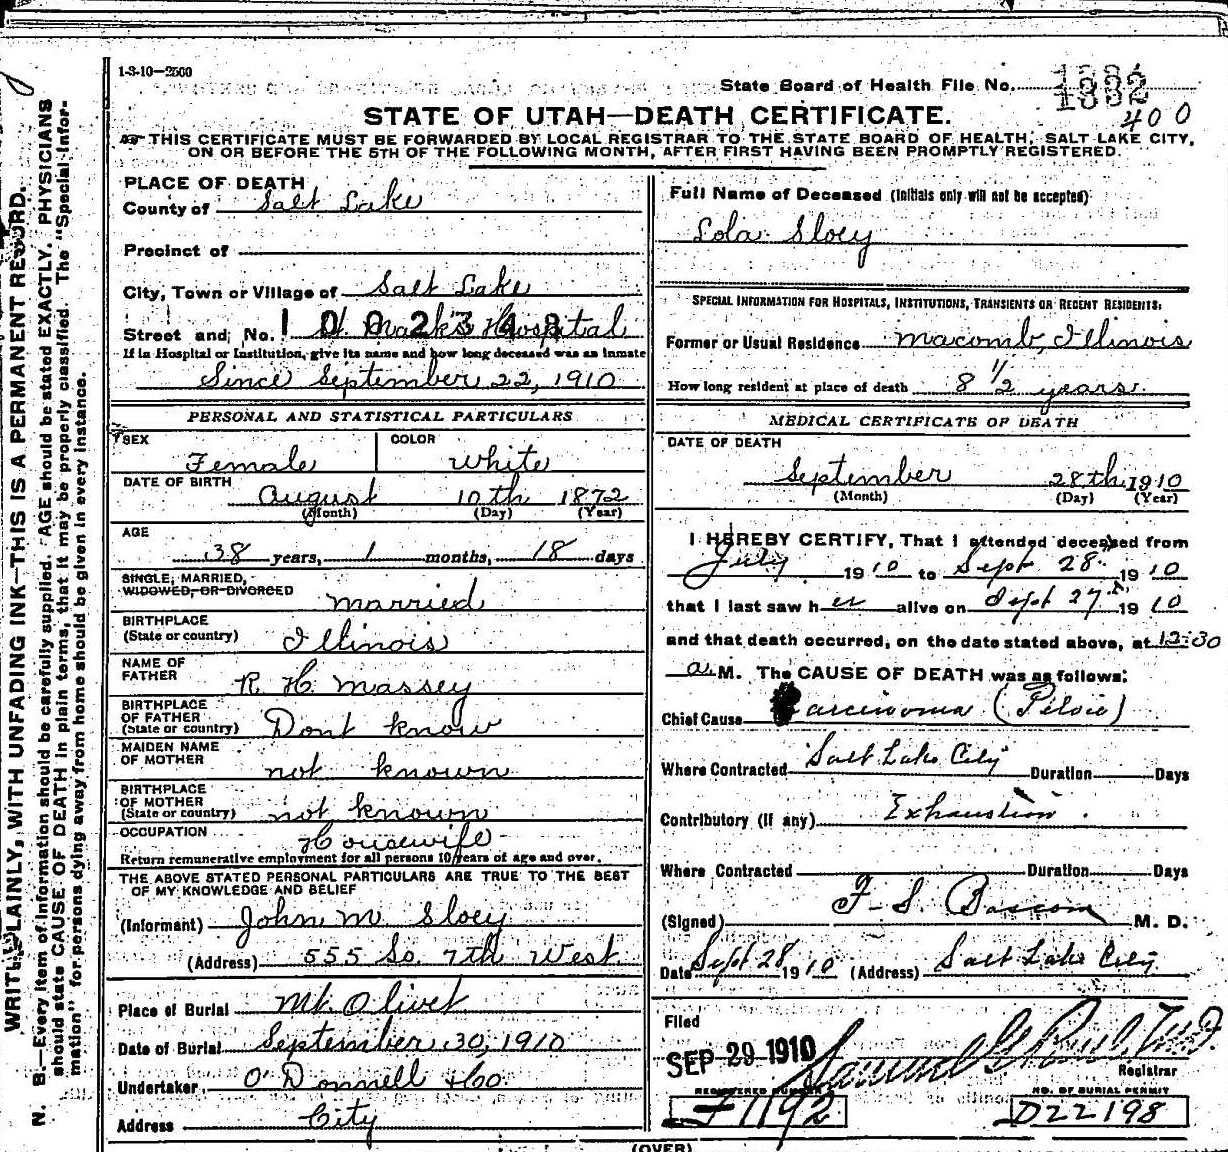 1-3-10—2500
State Board of Health File No.
400
STATE OF UTAH—DEATH CERTIFICATE.
THIS CERTIFICATE MUST BE FORWARDED BY LOCAL REGISTRAR TO THE STATE BOARD OF HEALTH, SALT LAKE CITY,
ON OR BEFORE THE 5TH OF THE FOLLOWING MONTH, AFTER FIRST HAVING BEEN PROMPTLY REGISTERED.
WRITE PLAINLY, WITH UNFADING INK—THIS IS A PERMANENT RECORD.
N. B.—Every item of information should be carefully supplied. AGE should be stated EXACTLY. PHYSICIANS
should state CAUSE OF DEATH in plain terms, that it may be properly classified. The "Special Infor-
mation" for persons dying away from home should be given in every instance.
PLACE OF DEATH
County of Salt Lake
Precinct of
City, Town or Village of Salt Lake
Street and No. St. Mark's Hospital
1002348
If in Hospital or Institution, give its name and how long deceased was an inmate
Since September 22, 1910
PERSONAL AND STATISTICAL PARTICULARS
SEX COLOR
Female White
DATE OF BIRTH
August 10th 1872
(Month) (Day) (Year)
AGE
38 years, 1 months, 18 days
SINGLE, MARRIED,
WIDOWED, OR DIVORCED
married
BIRTHPLACE
(State or country) Illinois
NAME OF
FATHER R H. Massey
BIRTHPLACE
OF FATHER
(State or country) Dont know
MAIDEN NAME
OF MOTHER not known
BIRTHPLACE
OF MOTHER
(State or country) not known
OCCUPATION Housewife
Return remunerative employment for all persons 10 years of age and over.
THE ABOVE STATED PERSONAL PARTICULARS ARE TRUE TO THE BEST
OF MY KNOWLEDGE AND BELIEF
(Informant) John M Sloey
(Address) 555 So. 7th West
Place of Burial Mt. Olivet
Date of Burial September 30, 1910
Undertaker O'Donnell & Co.
Address City
Full Name of Deceased (Initials only will not be accepted)
Lola Sloey
SPECIAL INFORMATION FOR HOSPITALS, INSTITUTIONS, TRANSIENTS OR RECENT RESIDENTS.
Former or Usual Residence Macomb, Illinois
How long resident at place of death 8 1/2 years.
MEDICAL CERTIFICATE OF DEATH
DATE OF DEATH
September 28th 1910
(Month) (Day) (Year)
I HEREBY CERTIFY, That I attended deceased from
July 1910 to Sept 28" 1910
that I last saw her alive on Sept 27" 1910
and that death occurred, on the date stated above, at 12:30
a. M. The CAUSE OF DEATH was as follows:
Chief Cause Carcinoma (Pelvic)
Where Contracted Salt Lake City Duration Days
Contributory (if any) Exhaustion.
Where Contracted Duration Days
(Signed) F. S. Bascom M. D.
Date Sept 28 1910 (Address) Salt Lake City
Filed
SEP 29 1910
Registrar
REGISTERED NUMBER NO. OF BURIAL PERMIT
F 1192 D22198
(OVER)